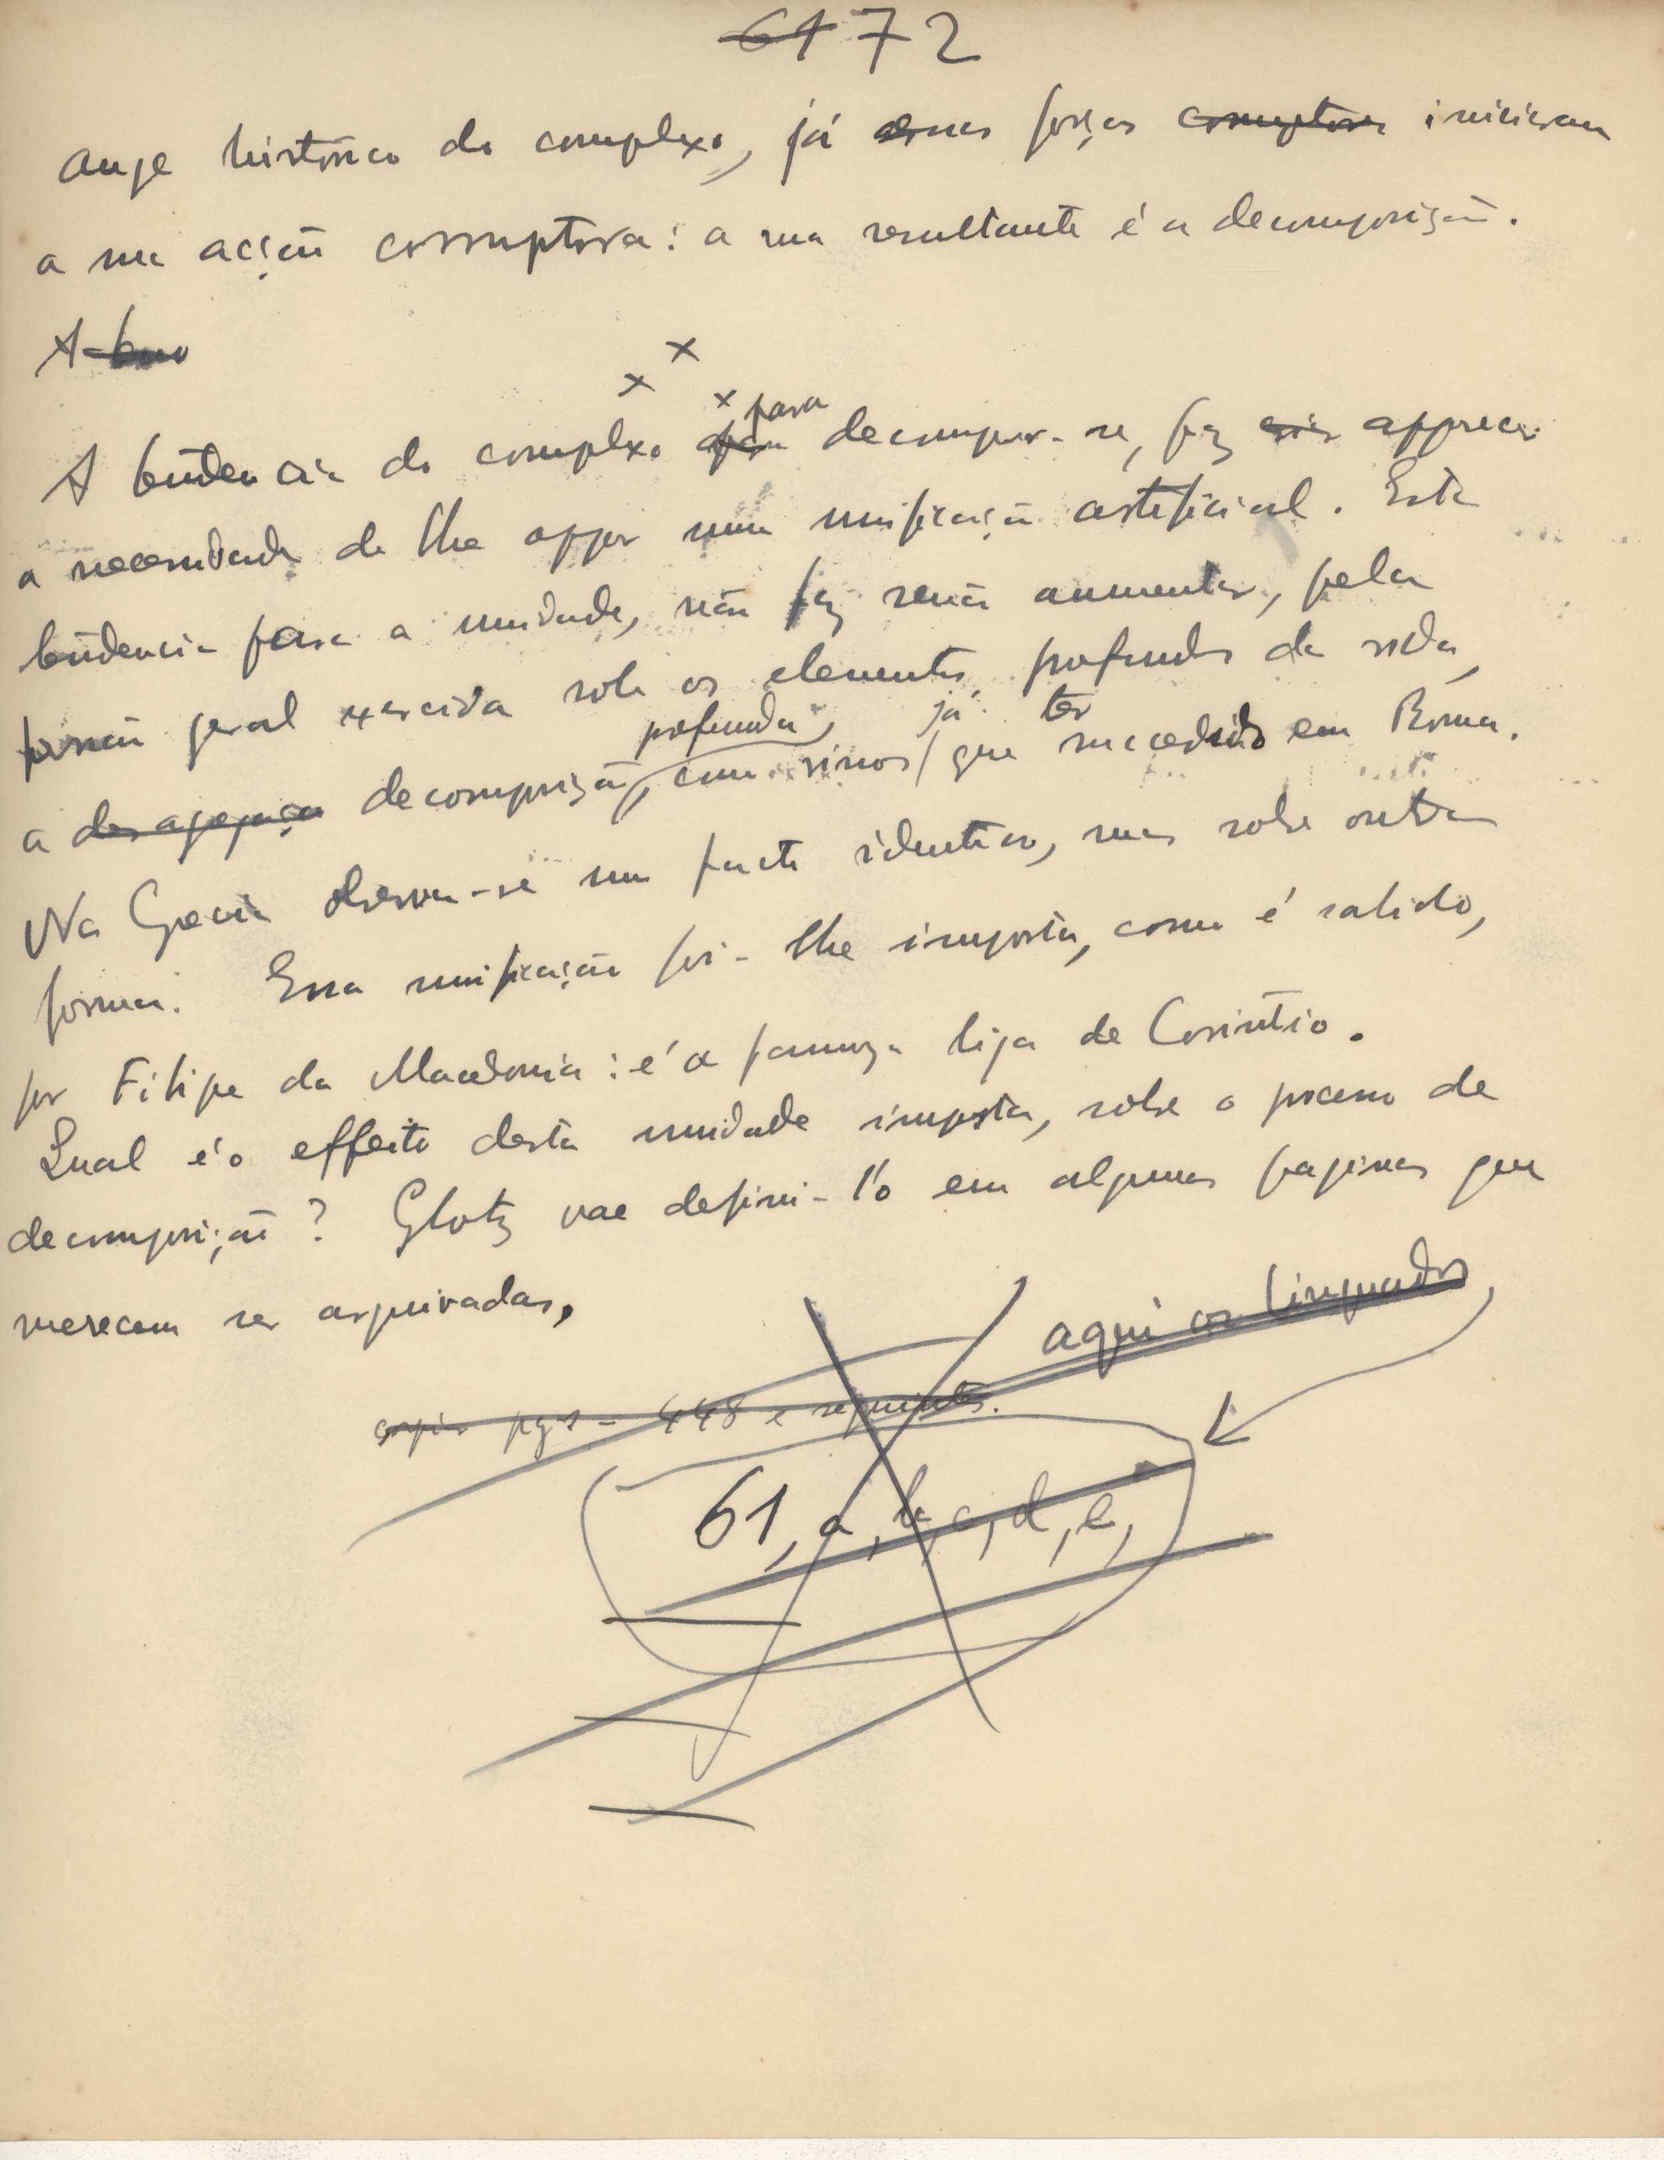 61 72
auge historico do complexo, já essas forças corruptoras iniciaram
a sua acção corruptora: a sua resultante é a decomposição.
A
x x x
para
A tendencia do complexo para decompor-se, faz apparecer
a necessidade de lhe oppor uma unificação artificial. Esta
tendencia para a unidade, não faz senão augmentar, pela
pressão geral exercida sobre os elementos profundos da vida,
profunda, já ter
a desagregação decomposição, como vimos que succedido em Roma.
Na Grecia observa-se um facto identico, mas sobre outra
forma. Essa unificação foi-lhe imposta, como é sabido,
por Filipe da Macedonia: é a famoza liga de Corintio.
Qual é o effeito desta unidade imposta, sobre o processo de
decomposição? Glotz vae defini-l'o em algumas paginas que
merecem ser arquivadas,
aqui os linguados
copiar pgs - 448 e seguintes.
61, a, b, c, d, e,